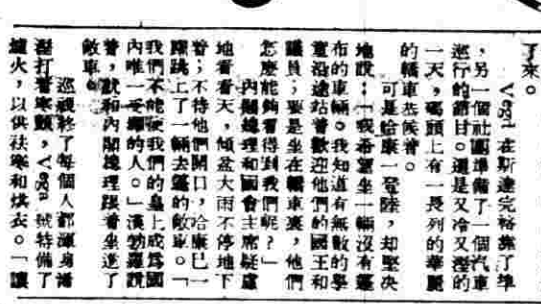 了來。
Vega 在斯達完格靠了準
，另一個社團準備了一個汽車
巡行的節目。這是又冷又溼的
一天，碼頭上有一長列的華麗
的轎車恭候着。
可是哈康一登陸，却堅决
地說：「我希望坐一輛沒有蓬
布的車輛。我知道有無數的學
童沿途站着歡迎他們的國王和
議員；要是坐在轎車裏，他們
怎麽能夠看得到我們呢？」
內閣總理和國會主席疑慮
地看看天，傾盆大雨不停地下
着；不待他們開口，哈康已一
躍跳上了一輛去蓬的敞車。「
我們不能使我們的皇上成爲國
內唯一受溼的人。」漢勃羅說
着，就和內閣總理跟着坐進了
敞車。
巡視終了每個人都渾身
溼打着寒顫，Vega 號特備了
爐火，以供袪寒和烘衣。「讓